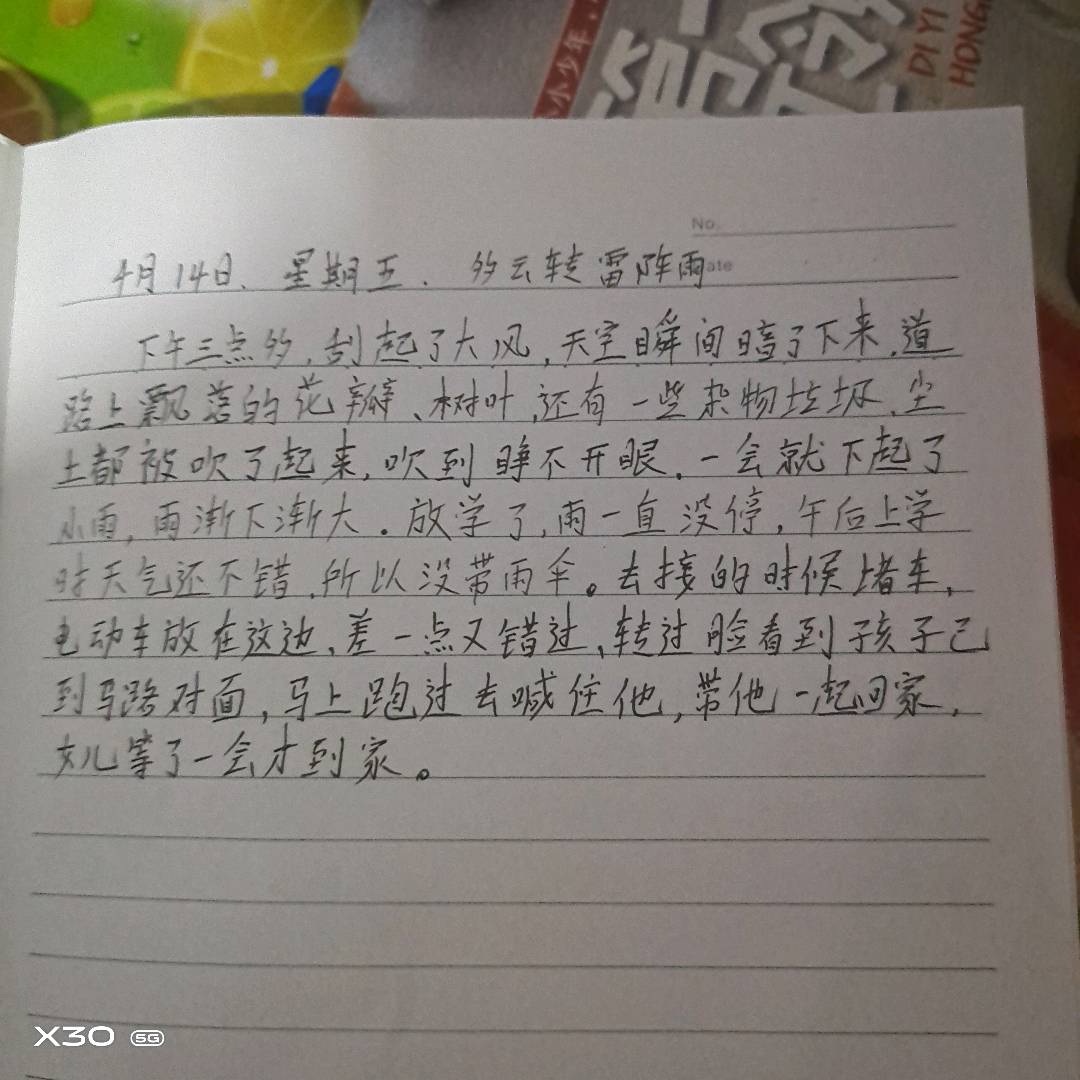 小小少年
DI YI
HONG
No.
4月14日、星期五. 多云转雷阵雨
ate
下午三点多,刮起了大风,天空瞬间暗了下来,道
路上飘落的花瓣、树叶,还有一些杂物垃圾、尘
土都被吹了起来,吹到睁不开眼,一会就下起了
小雨,雨渐下渐大.放学了,雨一直没停,午后上学
时天气还不错,所以没带雨伞。去接的时候堵车,
电动车放在这边,差一点又错过,转过脸看到孩子已
到马路对面,马上跑过去喊住他,带他一起回家,
女儿等了一会才到家。
X30 5G